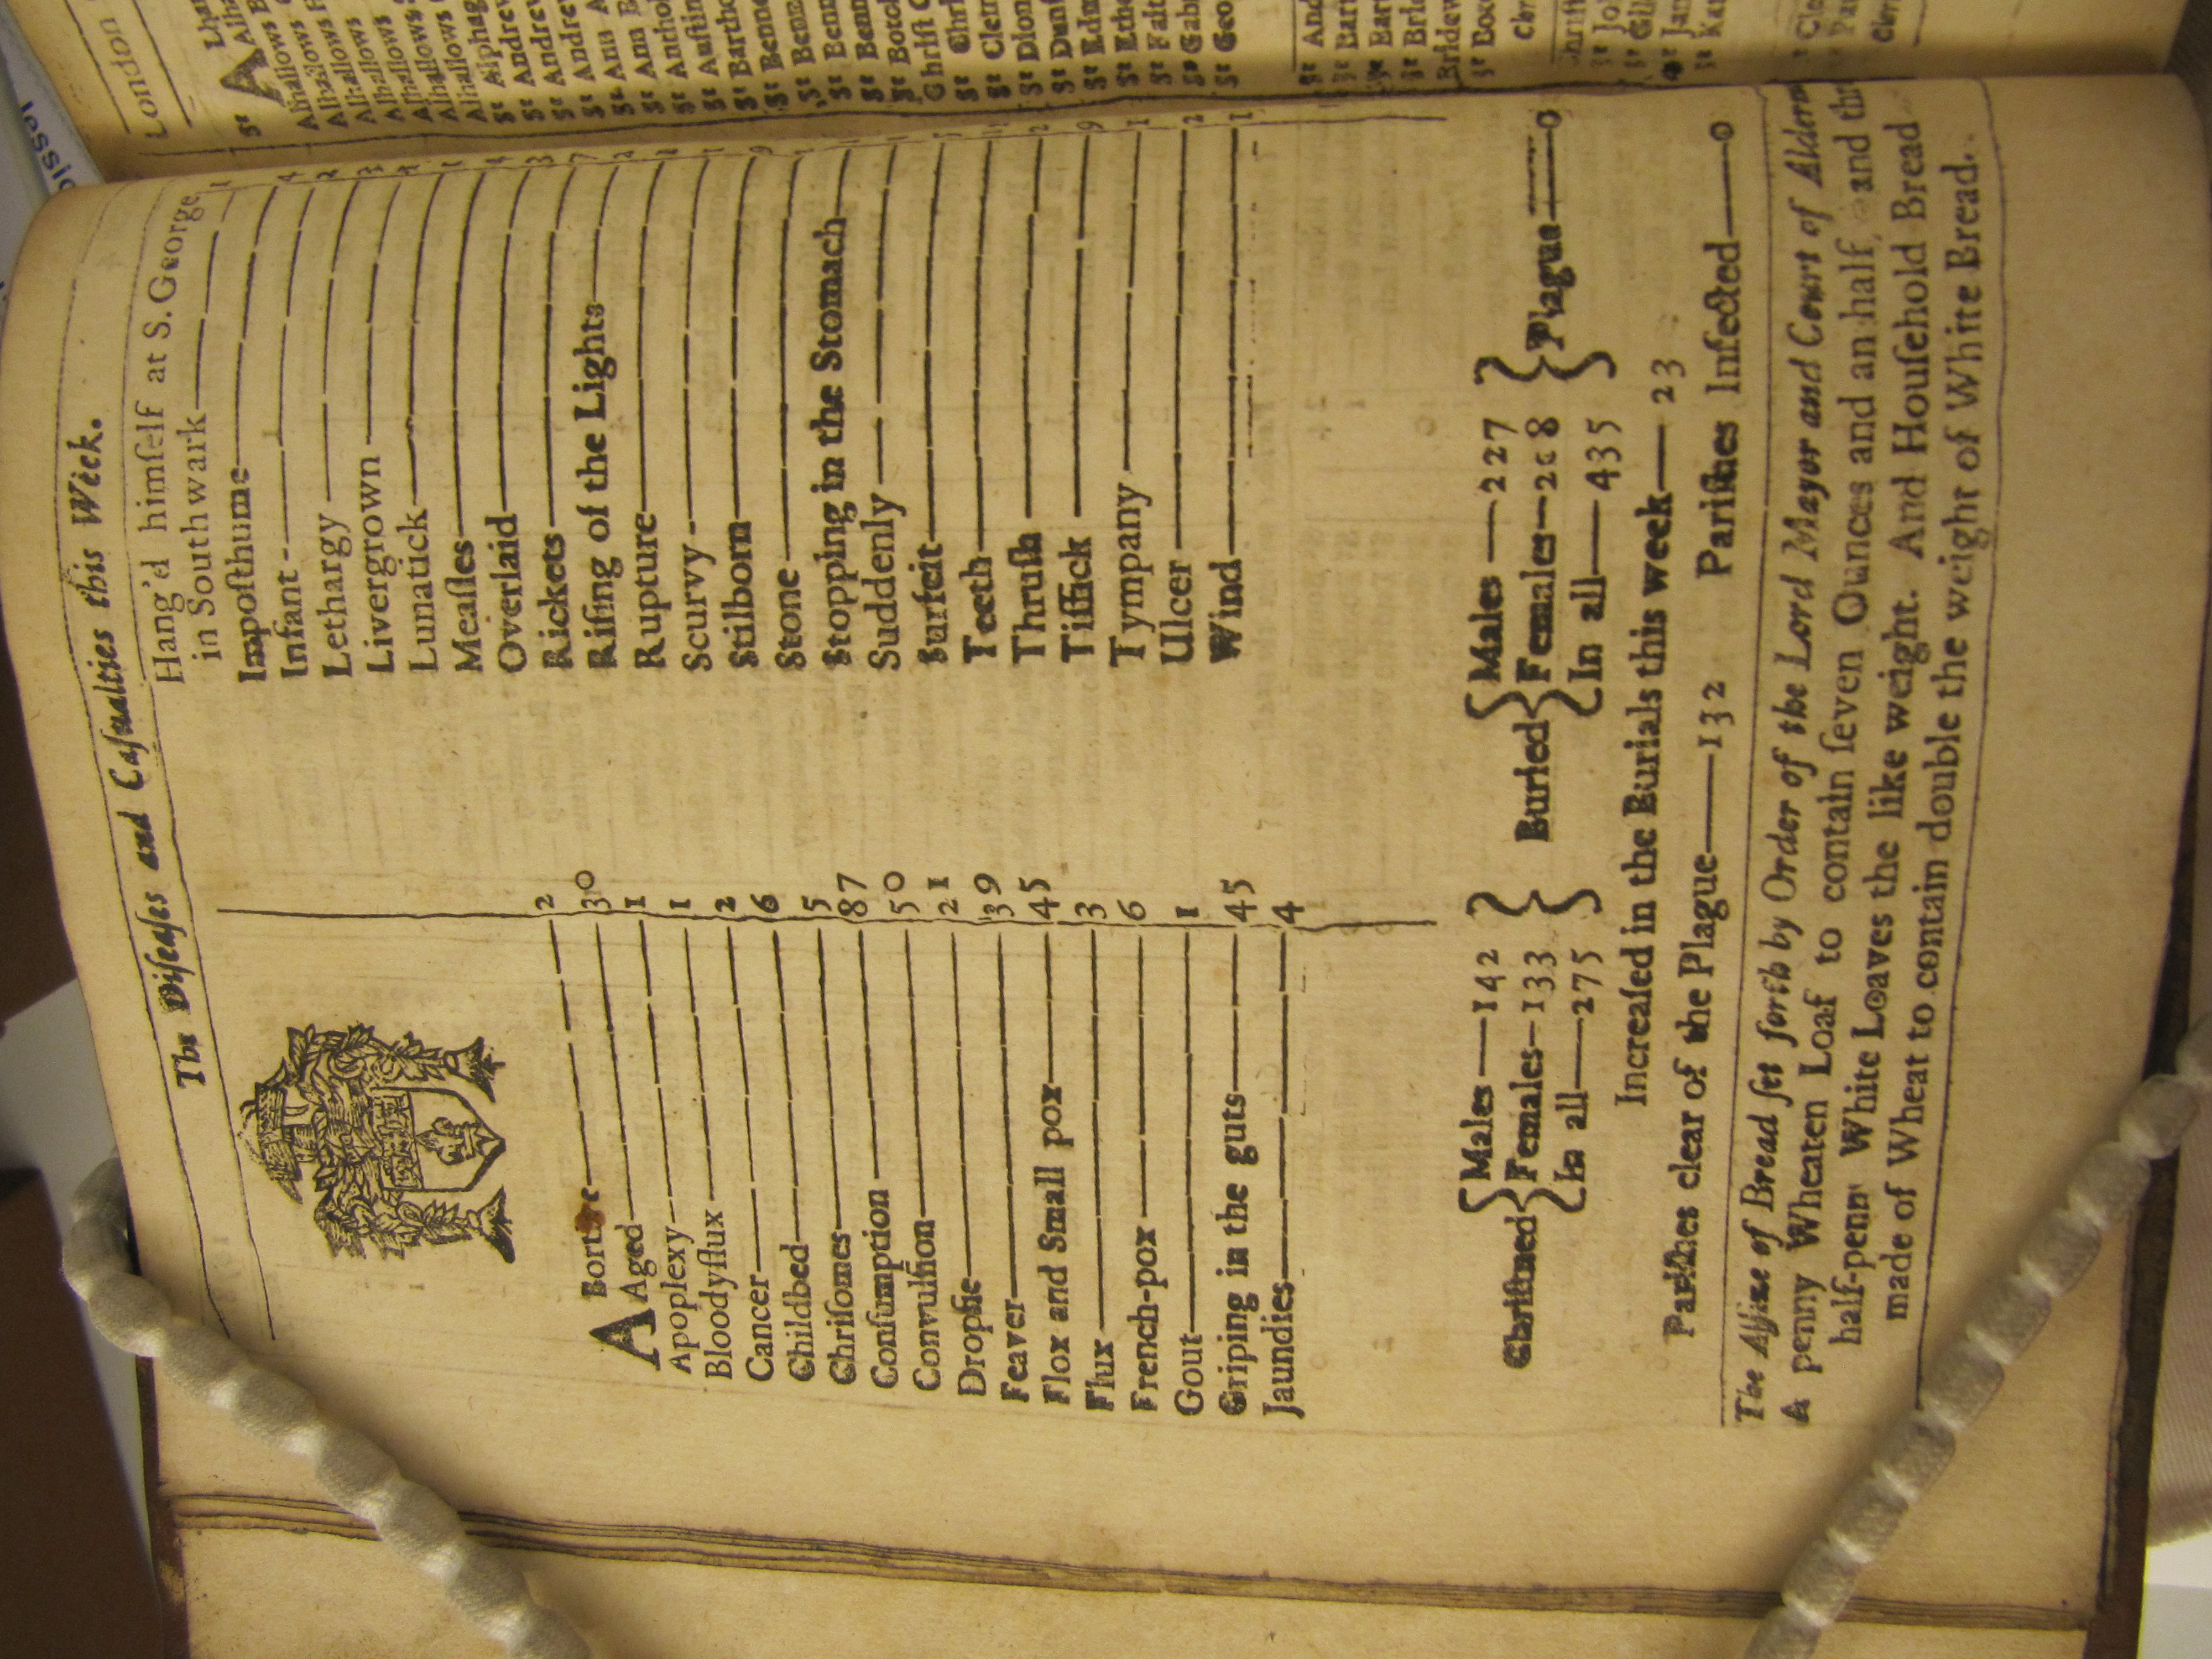 The Diseases and Casualties this Week.
ABortive 2
Aged 30
Apoplexy 1
Bloodyflux 1
Cancer 2
Childbed 6
Chrisomes 5
Consumption 87
Convulsion 50
Dropsie 21
Feaver 39
Flox and Small pox 45
Flux 3
French-pox 6
Gout 1
Griping in the guts 45
Jaundies 4
Hang'd himself at S. George
in Southwark 1
Imposthume 4
Infant 2
Lethargy 3
Livergrown
Lunatick 1
Measles 4
Overlaid 3
Rickets 7
Rising of the Lights 2
Rupture
Scurvy 1
Stilborn 9
Stone
Stopping in the Stomach
Suddenly
Surfeit
Teeth
Thrush 2
Tissick 9
Tympany 1
Ulcer 2
Wind 1
Christned { Males — 142 Females — 133 In all — 275 }
Buried { Males — 227 Females — 208 In all — 435 } Plague — 0
Increased in the Burials this week — 23
Parishes clear of the Plague — 132 Parishes Infected — 0
The Assize of Bread set forth by Order of the Lord Mayor and Court of Alderm
A penny Wheaten Loaf to contain seven Ounces and an half, and thr
half-penn White Loaves the like weight. And Household Bread
made of Wheat to contain double the weight of White Bread.
London
Alhallows
Alhallows
Alhallows
Alhallows
Alhallows
St Andrew
St Andrew
St Andrew
St Ann
St Ann
St Austin
St Barth
St Bennet
St Benn
St Benn
St Benn
St Botol
Christ C
St Chri
St Clem
St Dion
St Dun
St Edm
St Ethe
St Gab
St Geo
St And
St Bart
Bridew